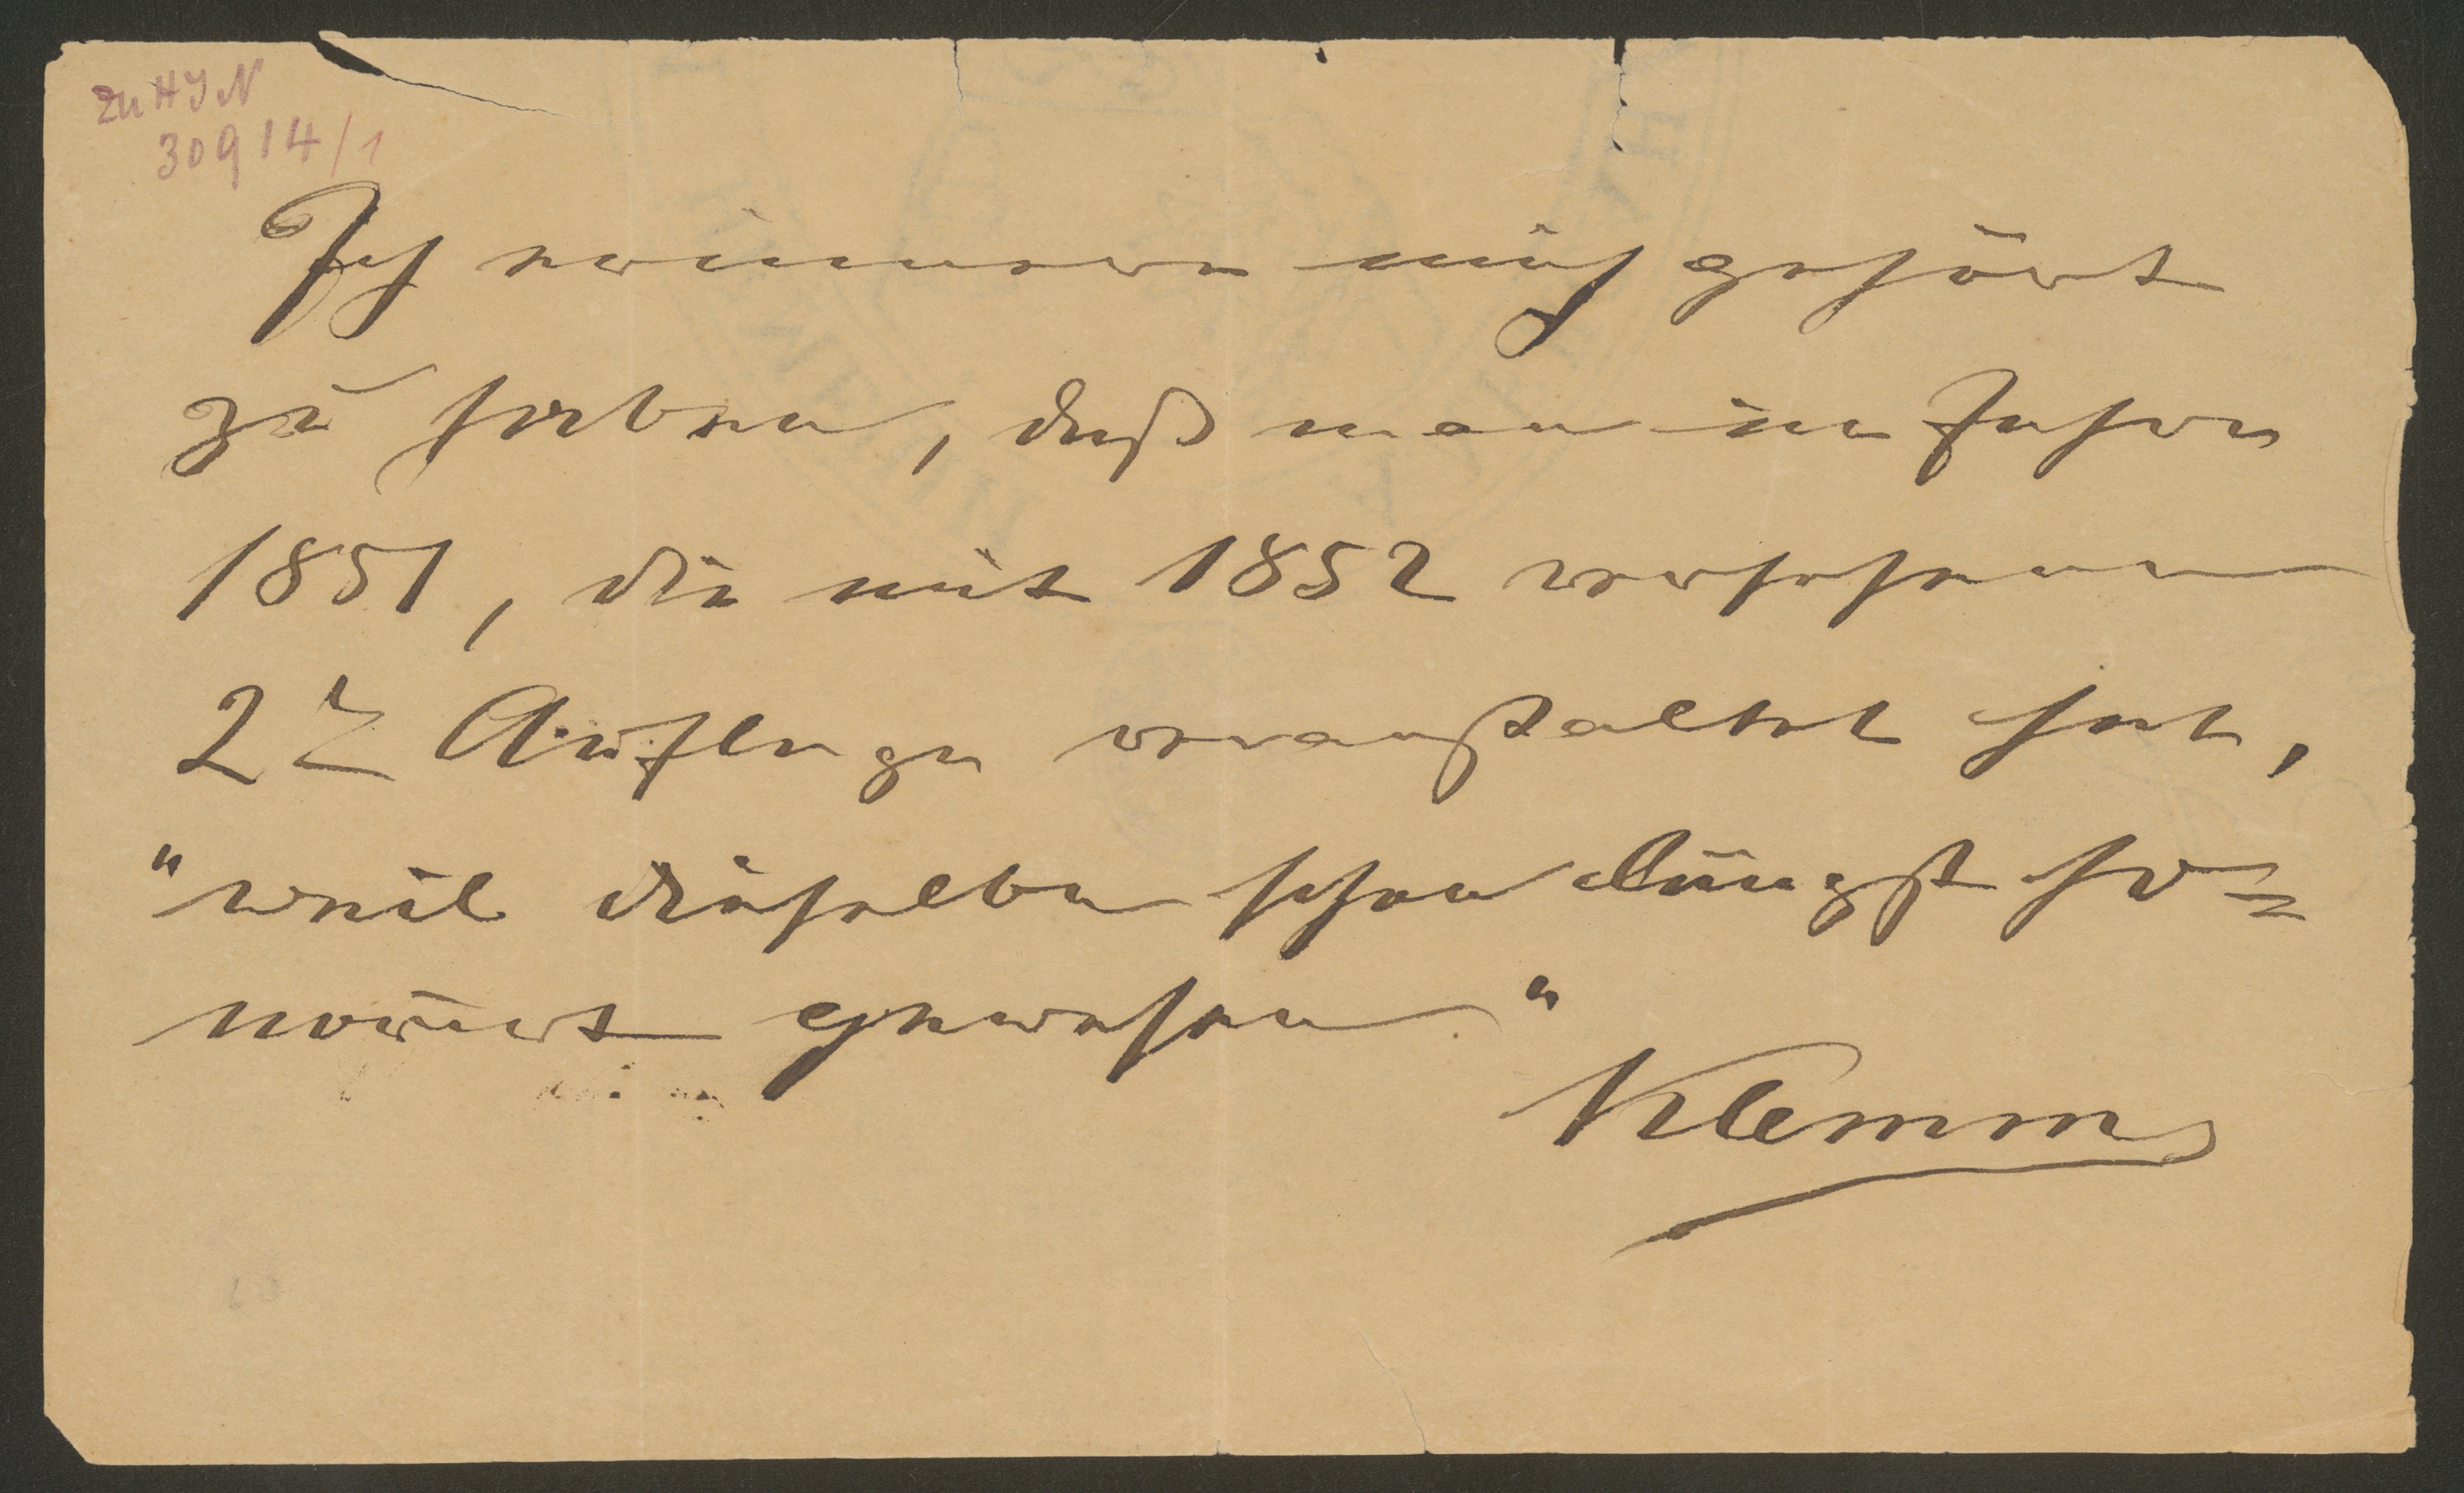 Zu HJN
30914/1
Ich erinnere mich gehört
zu haben, daß man im Jahre
1851, die mit 1852 versehene
2te Auflage veranstaltet hat,
"weil dieselbe schon längst ho=
norirt gewesen"
Klemm